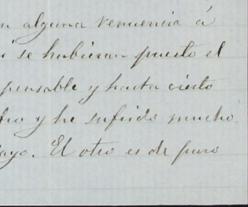 n alguna renuencia á
i se hubiera puesto el
pensable y hasta cierto
tro y he sufrido mucho
ayo. El otro es de puro